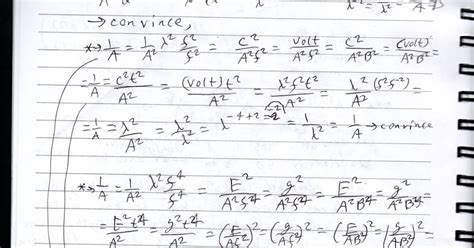 → convince,
*→ 1/A = 1/A² λ² f²/f² = c²/A²f² = volt/A²f² = c²/A²B² = (volt)/A²B² =
= 1/A = c²t²/A² = (volt)t²/A² = λ²f²t²/A² = λ²(f²f⁻²)/A² =
= 1/A = λ²/A² = λ²/λ⁴ = λ⁻⁴⁺² = ⁻² = 1/λ² = 1/A → convince
*→ 1/A = 1/A² λ² f⁴/f⁴ = E²/A²f⁴ = g²/A²f⁴ = E²/A²B⁴ = g²/A²B⁴ =
= E²t⁴/A² = g²t⁴/A² = (E/Af²)² = (g/Af²)² = (E/AB²)² = (g/AB²)² =